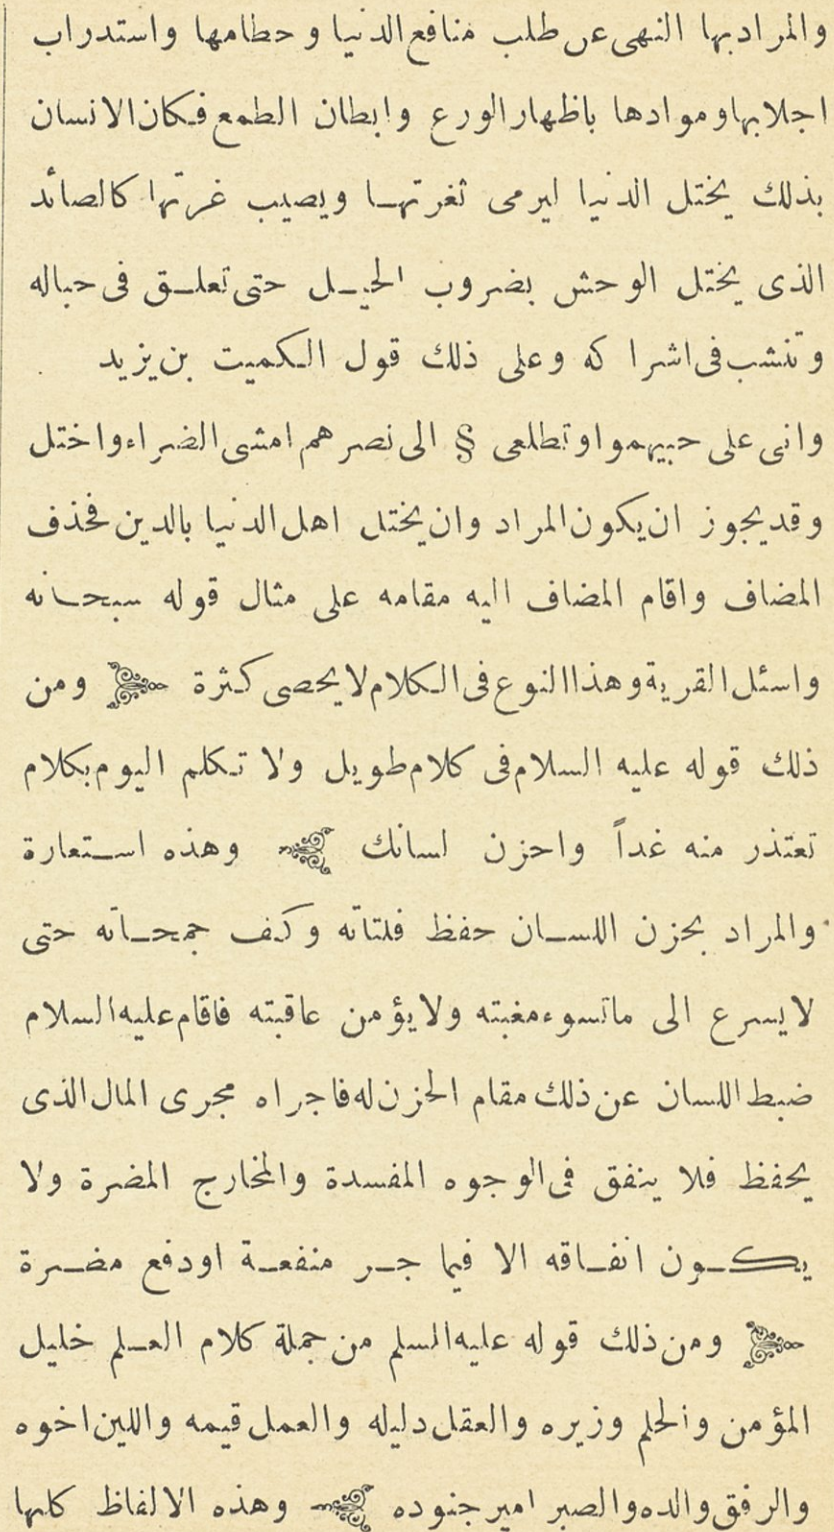 والمراد بها النهى عن طلب منافع الدنيا وحطامها واستدراب
اجلابها وموادها باظهار الورع وابطان الطمع فكان الانسان
بذلك يختل الدنيا ليرمى ثغرتها ويصيب غرتها كالصائد
الذى يختل الوحش بضروب الحيل حتى تعلق فى حباله
وتنشب فى اشراكه وعلى ذلك قول الكميت بن يزيد
وانى على حبيهموا وتطلعى § الى نصرهم امشى الضراء واختل
وقد يجوز ان يكون المراد وان يختل اهل الدنيا بالدين فحذف
المضاف واقام المضاف اليه مقامه على مثال قوله سبحانه
واسئل القرية وهذا النوع فى الكلام لا يحصى كثرة ومن
ذلك قوله عليه السلام فى كلام طويل ولا تكلم اليوم بكلام
تعتذر منه غداً واحزن لسانك وهذه استعارة
والمراد بحزن اللسان حفظ فلتاته وكف جمحاته حتى
لا يسرع الى ما تسوء مغبته ولا يؤمن عاقبته فاقام عليه السلام
ضبط اللسان عن ذلك مقام الحزن له فاجراه مجرى المال الذى
يحفظ فلا ينفق فى الوجوه المفسدة والمخارج المضرة ولا
يكون انفاقه الا فيما جر منفعة او دفع مضرة
ومن ذلك قوله عليه السلم من جملة كلام العلم خليل
المؤمن والحلم وزيره والعقل دليله والعمل قيمه واللين اخوه
والرفق والده والصبر امير جنوده وهذه الالفاظ كلها